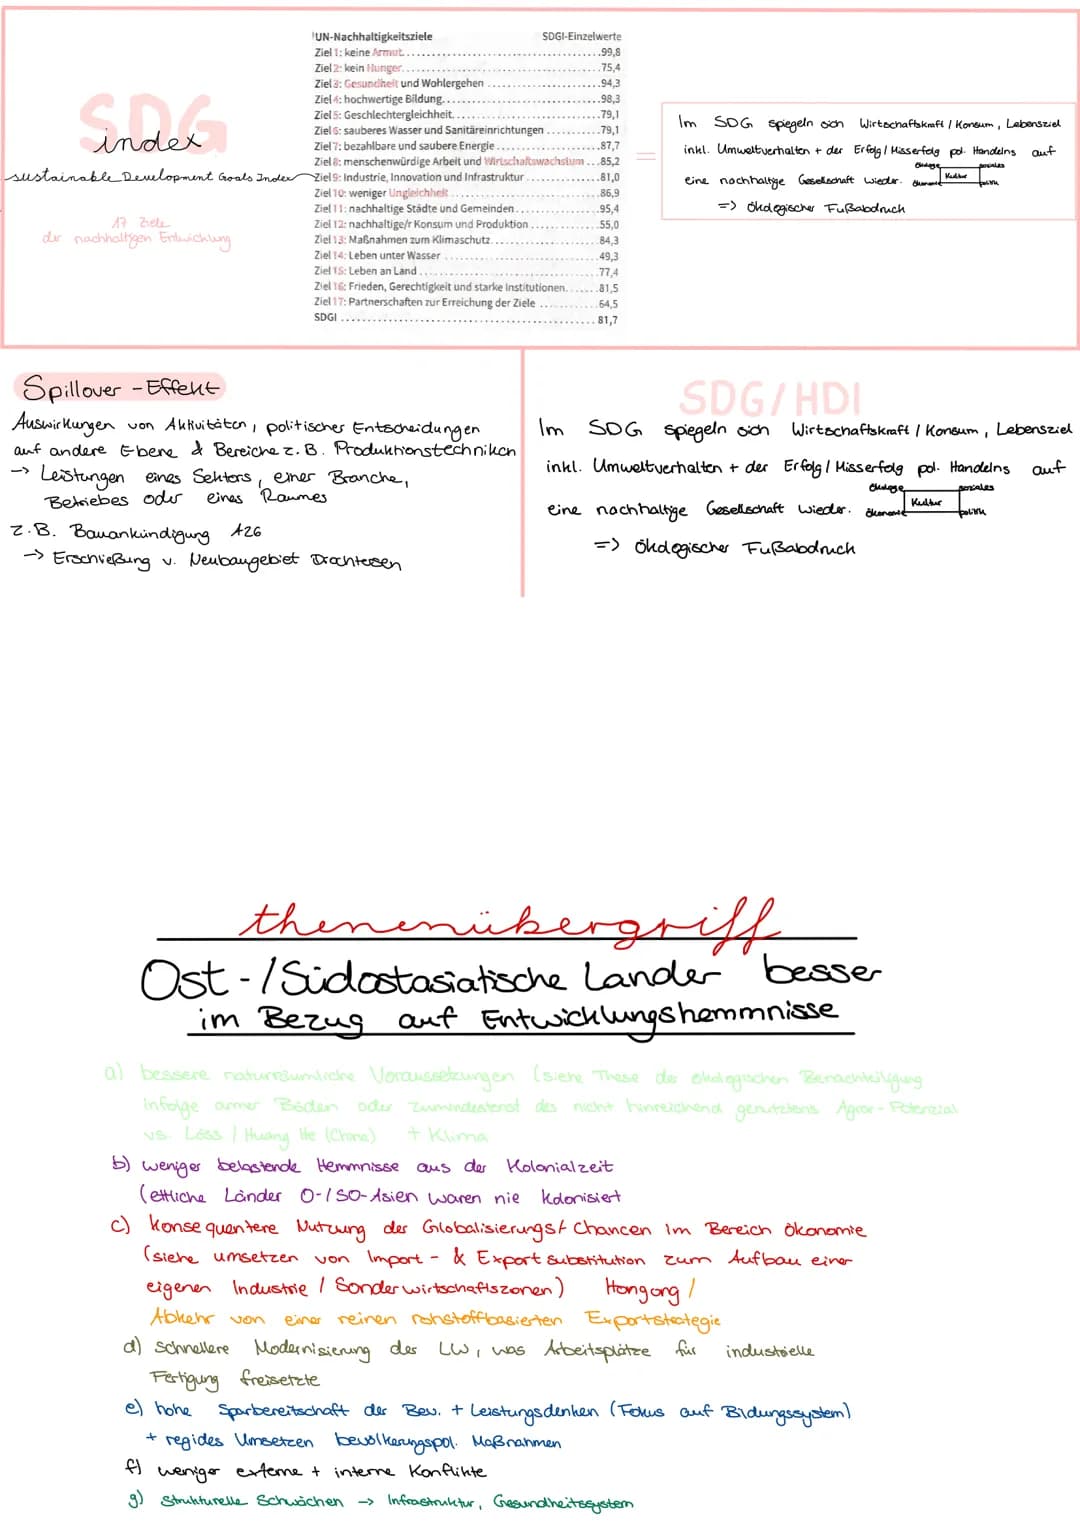 UN-Nachhaltigkeitsziele SDGI-Einzelwerte
Ziel 1: keine Armut 99,8
Ziel 2: kein Hunger 75,4
Ziel 3: Gesundheit und Wohlergehen 94,3
Ziel 4: hochwertige Bildung 98,3
Ziel 5: Geschlechtergleichheit 79,1
Ziel 6: sauberes Wasser und Sanitäreinrichtungen 79,1
Ziel 7: bezahlbare und saubere Energie 87,7
Ziel 8: menschenwürdige Arbeit und Wirtschaftswachstum 85,2
Ziel 9: Industrie, Innovation und Infrastruktur 81,0
Ziel 10: weniger Ungleichheit 86,9
Ziel 11: nachhaltige Städte und Gemeinden 95,4
Ziel 12: nachhaltige/r Konsum und Produktion 55,0
Ziel 13: Maßnahmen zum Klimaschutz 84,3
Ziel 14: Leben unter Wasser 49,3
Ziel 15: Leben an Land 77,4
Ziel 16: Frieden, Gerechtigkeit und starke Institutionen 81,5
Ziel 17: Partnerschaften zur Erreichung der Ziele 64,5
SDGI 81,7
SDG
index
sustainable Development Goals Index
17 Ziele
der nachhaltigen Entwicklung
=
Im SDG spiegeln sich Wirtschaftskraft / Konsum, Lebensziel
inkl. Umweltverhalten + der Erfolg / Misserfolg pol. Handelns auf
eine nachhaltige Gesellschaft wieder.
Ökologe soziales
Kultur
ökonomie politik
=> ökologischer Fußabdruck
Spillover - Effekt
Auswirkungen von Aktivitäten, politischer Entscheidungen
auf andere Ebene & Bereiche z. B. Produktionstechniken
-> Leistungen eines Sektors, einer Branche,
Betriebes oder eines Raumes
z. B. Bauankündigung A26
-> Erschließung v. Neubaugebiet Drochtersen
SDG/HDI
Im SDG spiegeln sich Wirtschaftskraft / Konsum, Lebensziel
inkl. Umweltverhalten + der Erfolg / Misserfolg pol. Handelns auf
Ökologe soziales
eine nachhaltige Gesellschaft wieder. ökonomie Kultur politik
=> ökologischer Fußabdruck
themenübergriff
Ost - / Südostasiatische Länder besser
im Bezug auf Entwicklungshemmnisse
a) bessere naturräumliche Voraussetzungen (siehe These der ökologischen Benachteiligung
infolge armer Böden oder zumindestenst des nicht hinreichend genutztens Agrar-Potenzial
vs. Löss / Huang He (China) + Klima
b) weniger belastende Hemmnisse aus der Kolonialzeit
(etliche Länder O-/SO-Asien waren nie kolonisiert
c) konsequentere Nutzung der Globalisierungs/- Chancen im Bereich ökonomie
(siehe umsetzen von Import- & Exportsubstitution zum Aufbau einer
eigenen Industrie / Sonderwirtschaftszonen) Hongong /
Abkehr von einer reinen rohstoffbasierten Exportstrategie
d) schnellere Modernisierung der LW, was Arbeitsplätze für industrielle
Fertigung freisetzte
e) hohe Sparbereitschaft der Bev. + Leistungsdenken (Fokus auf Bildungssystem)
+ regides Umsetzen bevölkerungspol. Maßnahmen
f) weniger externe + interne Konflikte
g) strukturelle Schwächen -> Infrastruktur, Gesundheitssystem